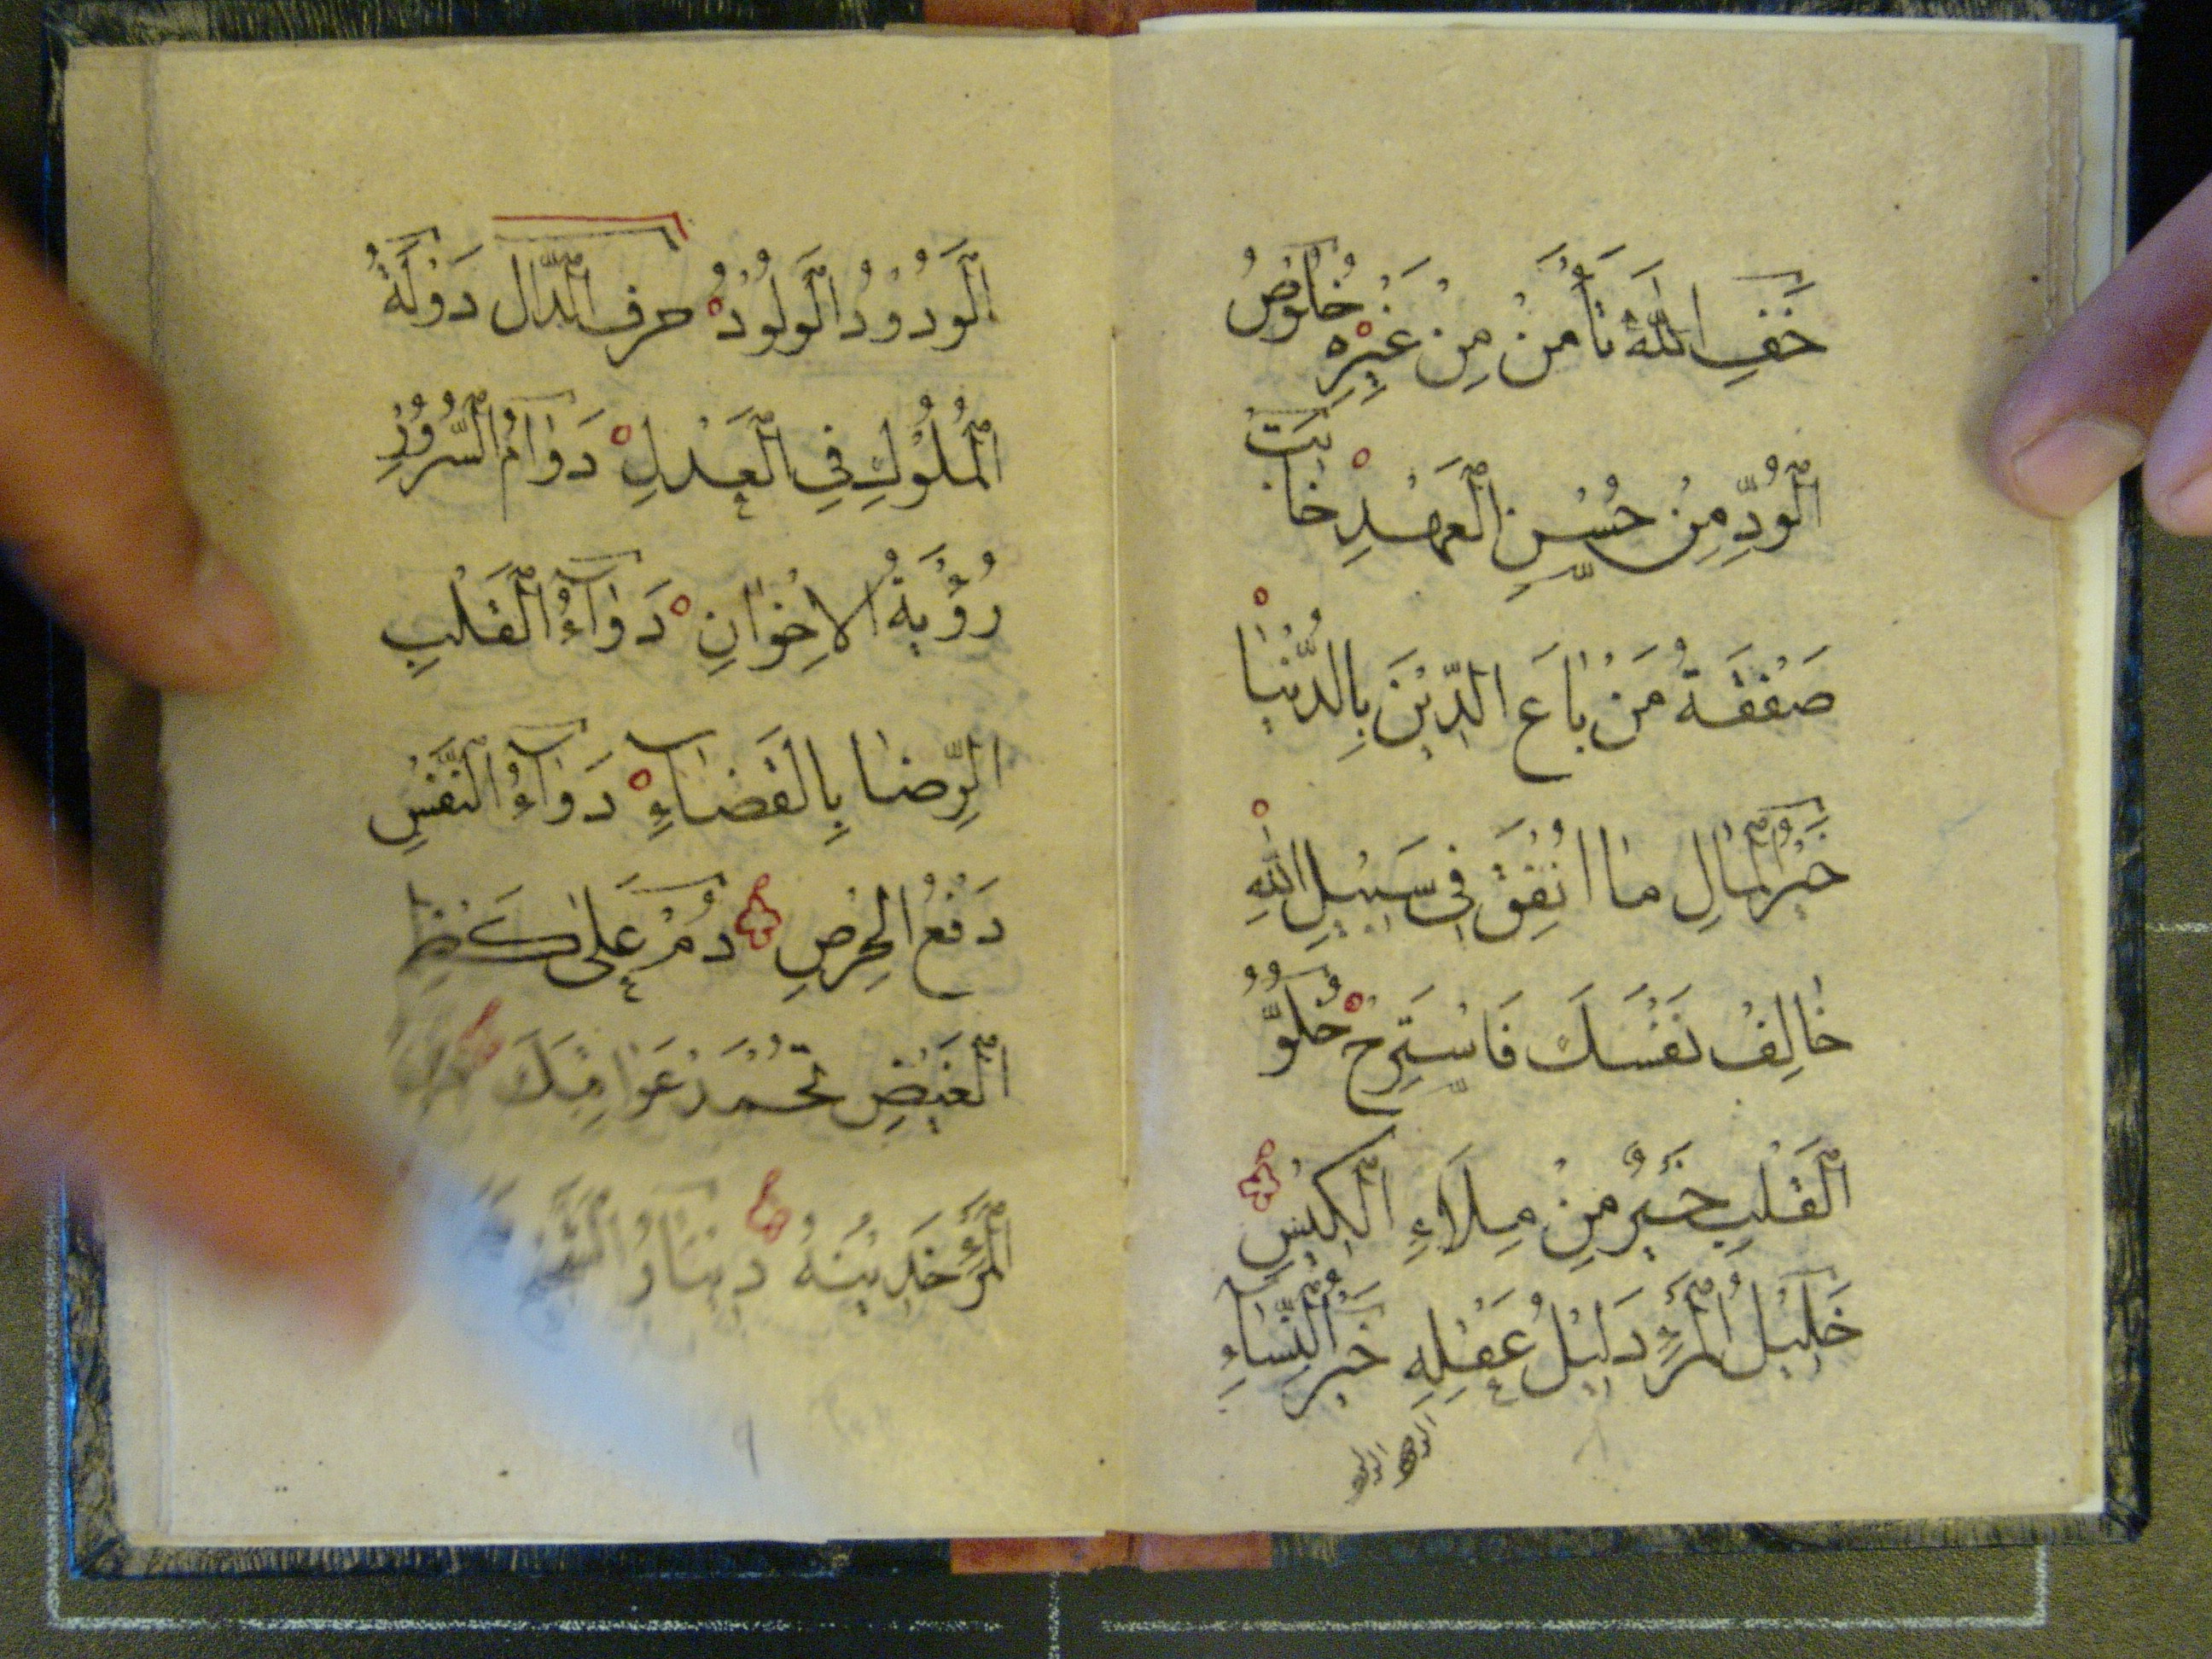 خَفِ اللّٰهَ تَأْمَنْ مِنْ غَيْرِهِ خُلُوصُ
الْوُدِّ مِنْ حُسْنِ الْعَهْدِ خَابَتْ
صَفْقَةُ مَنْ بَاعَ الدِّيْنَ بِالدُّنْيَا
خَيْرُ الْمَالِ مَا اُنْفِقَ فِى سَبِيْلِ اللّٰهِ
خَالِفْ نَفْسَكَ فَاسْتَرِحْ خُلُوُّ
الْقَلْبِ خَيْرٌ مِنْ مِلَاءِ الْكِيْسِ
خَلِيْلُ الْمَرْءِ دَلِيْلُ عَقْلِهِ خَيْرُ النِّسَاءِ
الْوَدُوْدُ الْوَلُوْدُ حرف الدَّال دَوْلَةُ
الْمُلُوْكِ فِى الْعَدْلِ دَوَامُ السُّرُوْرِ
رُؤْيَةُ الْاِخْوَانِ دَوَآءُ الْقَلْبِ
الرِّضَا بِالْقَضَآءِ دَوَآءُ النَّفْسِ
دَفْعُ الْحِرْصِ دُمْ عَلٰى كَظْمِ
الْغَيْضِ تُحْمَدْ عَوَاقِبَكَ
الْمَرْءِ خَدِيْنُهُ دِيْنَارُ